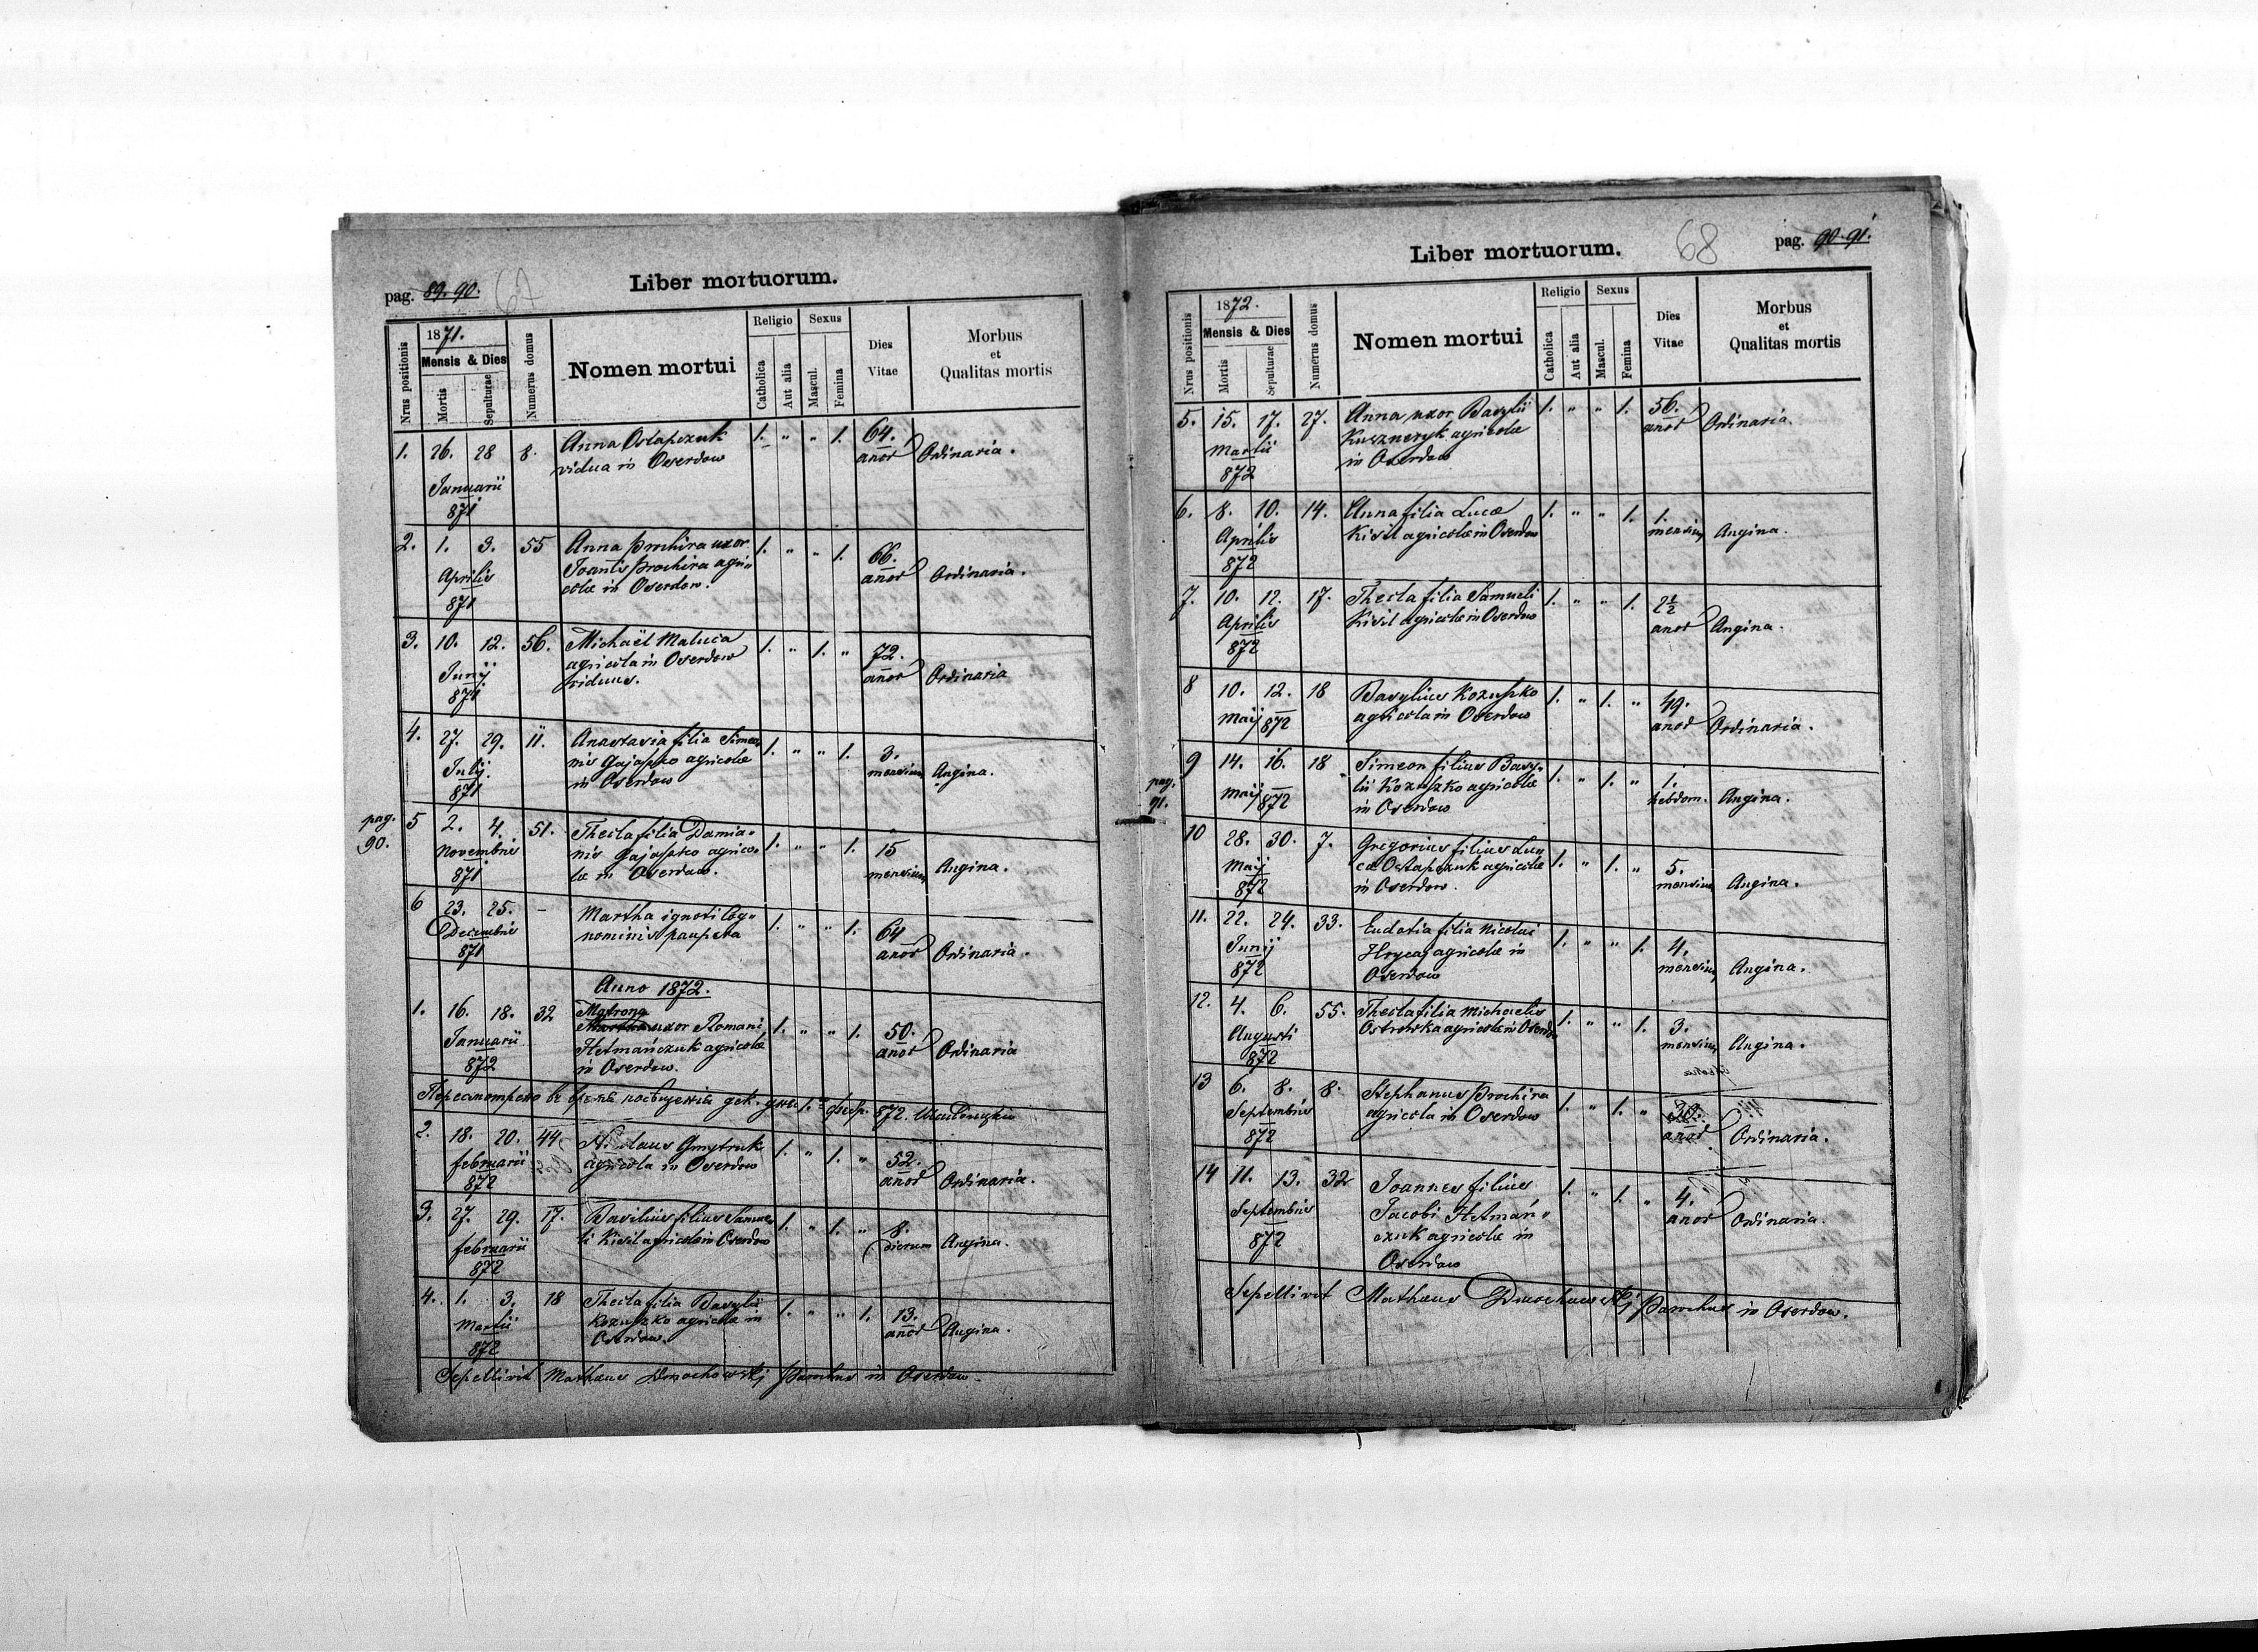 pag. 89. 90. 67
Liber mortuorum.
Nrus positionis
1871.
Mensis & Dies
Mortis
Sepulturae
Numerus domus
Nomen mortui
Religio
Catholica
Aut alia
Sexus
Mascul.
Femina
Dies
Vitae
Morbus
et
Qualitas mortis
1. 26. 28 8. Anna Ostapczuk 1. " " 1. 64.
vidua in Oserdow anor Ordinaria.
Januarii
871
2. 1. 3. 55 Anna Prochira uxor 1. " " 1. 66.
Aprilis Joantis Prochira agri„ anor Ordinaria.
871 colæ in Oserdow.
3. 10. 12. 56. Michaël Maluca 1. " 1. " 72.
Junij agricola in Oserdow anor Ordinaria
871 viduus.
4. 27. 29. 11. Anastasia filia Simeo„ 1. " " 1. 3.
Julij nis Gajaszko agricolæ mensium Angina.
871 in Oserdow
pag.
90.
5 2. 4. 51. Thecla filia Damia„ 1. " " 1. 15
Novembris nis Gajaszko agrico„ mensium Angina.
871 læ in Oserdow.
6 23. 25. - Martha ignoti Cog„ 1. " " 1. 64
Decembris nominis paupera anor Ordinaria.
871
Anno 1872.
1. 16. 18. 32 Matrona
Martha uxor Romani 1. " " 1. 50.
Januarii Hetmańczuk agricolæ anor Ordinaria
872 in Oserdow.
872.
2. 18. 20. 44. Nicolaus Gmytruk 1. " 1. " 52.
februarii agricola in Oserdow anor Ordinaria.
872
3. 27. 29. 17. Basilius filius Samue„ 1. " 1. " 8.
februarii li Kisil agricolæ in Oserdow dierum Angina.
872
4. 1. 3. 18 Thecla filia Basylii 1. " " 1. 13.
Martii Kozuszko agricolæ in anor Angina.
872 Oserdow.
Sepellivit Mathæus Dmochowskij Parochus in Oserdow.
Liber mortuorum.
68
pag. 90. 91.
Nrus positionis
1872.
Mensis & Dies
Mortis
Sepulturae
Numerus domus
Nomen mortui
Religio
Catholica
Aut alia
Sexus
Mascul.
Femina
Dies
Vitae
Morbus
et
Qualitas mortis
5. 15. 17. 27. Anna uxor Basylii 1. " " 1. 56.
Martii Kuszneryk agricolæ anor Ordinaria.
872 in Oserdow
6. 8. 10. 14. Anna filia Lucæ 1. " " 1. 1.
Aprilis Kisil agricolæ in Oserdow mensium Angina.
872
7. 10. 12. 17. Thecla filia Samueli 1. " " 1. 2½
Aprilis Kisil agricolæ in Oserdow anor Angina.
872
8 10. 12. 18 Basylius Kozuszko 1. " 1. " 49.
Maij 872 agricola in Oserdow anor Ordinaria.
pag.
91.
9 14. 16. 18 Simeon filius Basy„ 1. " 1. " 1.
Maij 872 lii Kozuszko agricolæ hebdom. Angina.
in Oserdow
10 28. 30. 7. Gregorius filius Lu„ 1. " 1. " 5.
Maij cæ Ostapczuk agricolæ mensium Angina.
872 in Oserdow.
11. 22. 24. 33. Eudoxia filia Nicolai 1. " " 1. 4.
Junij Hrycaj agricolæ in mensium Angina.
872 Oserdow
12. 4. 6. 55. Thecla filia Michaelis 1. " " 1. 3.
Augusti Ostrowka agricolæ in Oserdow mensium Angina.
872
13 6. 8. 8. Stephanus Prochira 1. " 1. " 30.
Septembris agricola in Oserdow anor Ordinaria.
872
14 11. 13. 32 Joannes filius 1. " 1. " 4.
Septembris Jacobi Hetmań„ anor Ordinaria.
872 czuk agricolæ in
Oserdow
Sepellivit Mathæus Dmochowskij Parochus in Oserdow.